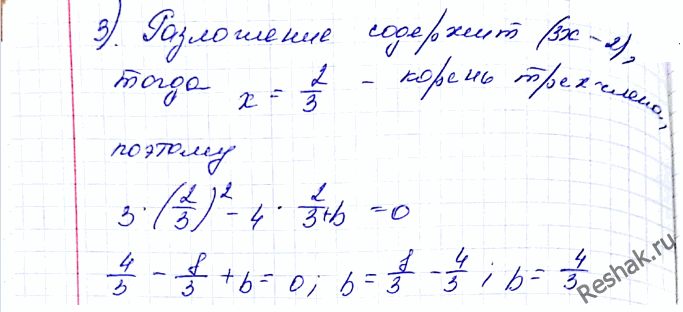 3). Разложение содержит (3x-2),
тогда x = 2/3 - корень трехчлена,
поэтому
3·(2/3)² - 4·2/3+b = 0
4/3 - 8/3 + b = 0; b = 8/3 - 4/3; b = 4/3
Reshak.ru